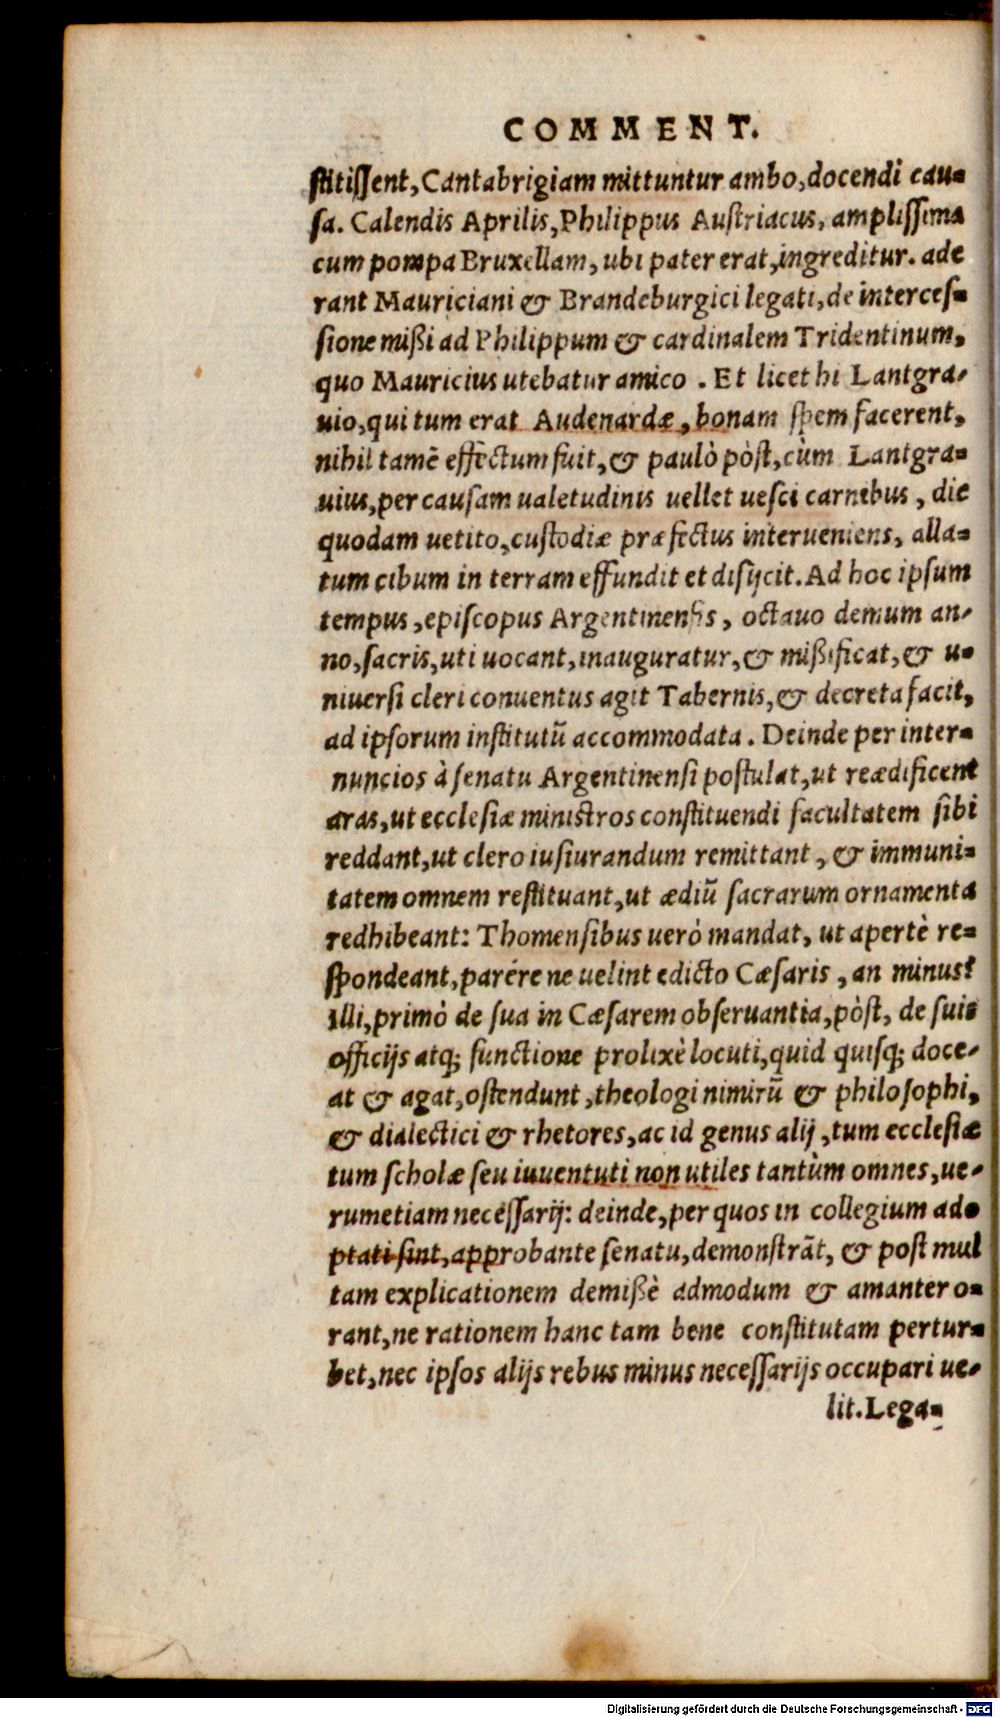 COMMENT.
stitissent, Cantabrigiam mittuntur ambo, docendi cau-
sa. Calendis Aprilis, Philippus Austriacus, amplissima
cum pompa Bruxellam, ubi pater erat, ingreditur. ade
rant Mauriciani & Brandeburgici legati, de interces-
sione mißi ad Philippum & cardinalem Tridentinum,
quo Mauricius utebatur amico. Et licet hi Lantgra-
uio, qui tum erat Audenardæ, bonam spem facerent,
nihil tamē effectum fuit, & paulò pòst, cùm Lantgra-
uius, per causam ualetudinis uellet uesci carnibus, die
quodam uetito, custodiæ præfectus interueniens, alla-
tum cibum in terram effundit et disijcit. Ad hoc ipsum
tempus, episcopus Argentinensis, octauo demum an-
no, sacris, uti uocant, inauguratur, & mißificat, & u-
niuersi cleri conuentus agit Tabernis, & decreta facit,
ad ipsorum institutū accommodata. Deinde per inter-
nuncios à senatu Argentinensi postulat, ut reædificent
aras, ut ecclesiæ ministros constituendi facultatem sibi
reddant, ut clero iusiurandum remittant, & immuni-
tatem omnem restituant, ut ædiū sacrarum ornamenta
redhibeant: Thomensibus uerò mandat, ut apertè re-
spondeant, parére ne uelint edicto Cæsaris, an minus?
Illi, primò de sua in Cæsarem obseruantia, pòst, de suis
officijs atq; functione prolixè locuti, quid quisq; doce-
at & agat, ostendunt, theologi nimirū & philosophi,
& dialectici & rhetores, ac id genus alij, tum ecclesiæ
tum scholæ seu iuuentuti non utiles tantùm omnes, ue-
rumetiam necessarij: deinde, per quos in collegium ad-
ptati sint, approbante senatu, demonstrāt, & post mul
tam explicationem demißè admodum & amanter o-
rant, ne rationem hanc tam bene constitutam pertur-
bet, nec ipsos alijs rebus minus necessarijs occupari ue-
lit. Lega-
Digitalisierung gefördert durch die Deutsche Forschungsgemeinschaft - DFG